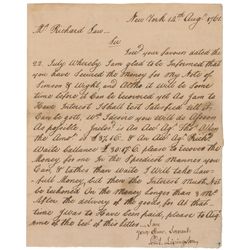 New York 12th Augt 1761.
Mr. Richard Law
Sir
Your favour dated the
22. July Whereby I am glad to be Informed that
you have Secured the Money for my Note of
Simon & Wight, and Altho it will be Some
time before it Can be recovered yet As I am to
Have Interest I Shall rest Satisfied till it
Can be gott, Wh Desire you Will do As soon
As possible, Inclosed is An Acct Agt Thos Allen
the Amot £ & An Acct Agt
Waite ballance £30. please to recover the
Money for me In the Speediest Manner you
Can, & Rather than Waite I Will take Law-
full Money, but then the Interest Must
be reckoned On the Money longer than
After the delivery of the goods for At that
time I was to Have been paid, please to
me of the rec of this Letter. I am
your Hum Servant
Phil. Livingston